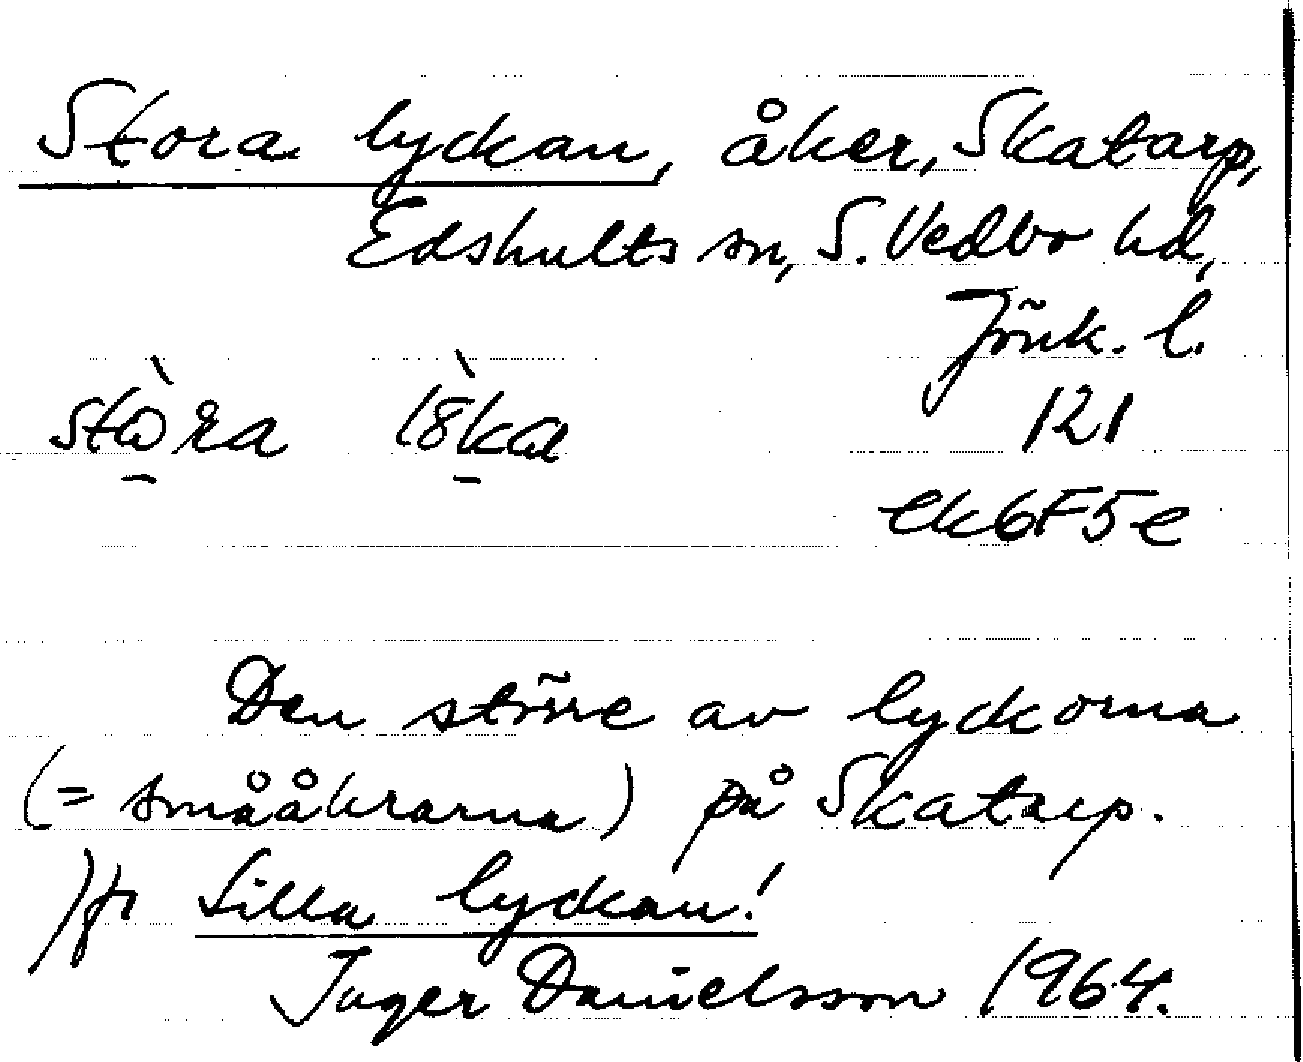 Stora lyckan, åker, Skatarp,
Edshults sn, S. Vedbo hd,
Jönk. l.
121
ek6F5e
Den större av lyckorna
(= smååkrarna) på Skatarp.
Jfr Lilla lyckan!
Inger Danielsson 1964.